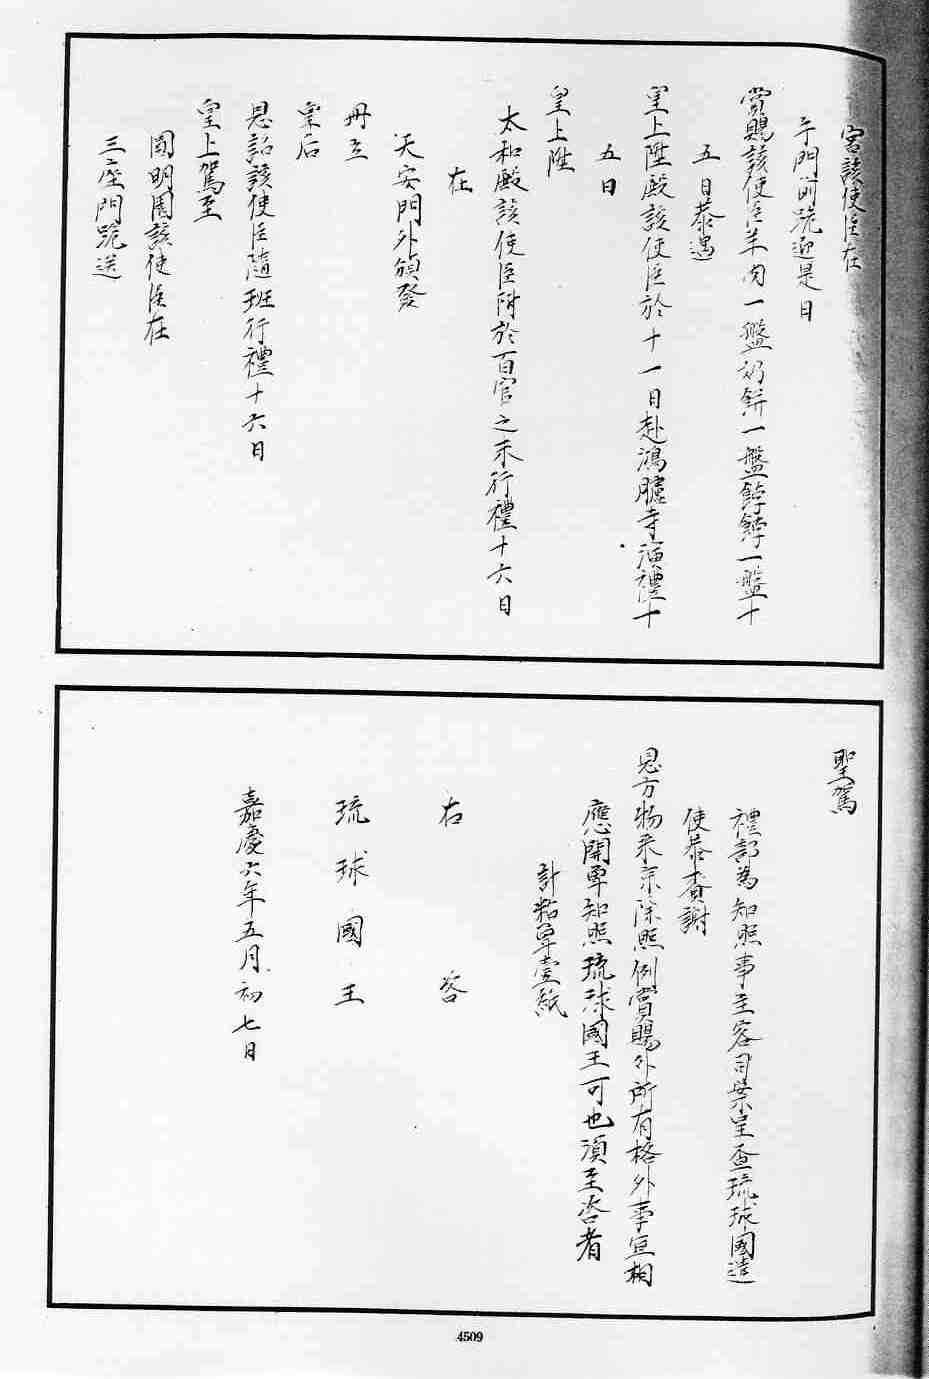 宮該使臣在
午門前跪迎是日
賞賜該使臣羊肉一盤奶餅一盤餑餑一盤十
五日恭遇
皇上陞殿該使臣於十一日赴鴻臚寺演禮十
五日
皇上陞
太和殿該使臣附於百官之末行禮十六日
在
天安門外頒發
冊立
皇后
恩詔該使臣隨班行禮十六日
皇上駕至
圓明園該使臣在
三座門跪送
聖駕
禮部為知照事主客司案呈查琉球國遣
使恭賫謝
恩方物來京除照例賞賜外所有格外事宜相
應開單知照琉球國王可也須至咨者
計粘單壹紙
右咨
琉球國王
嘉慶六年五月初七日
4509